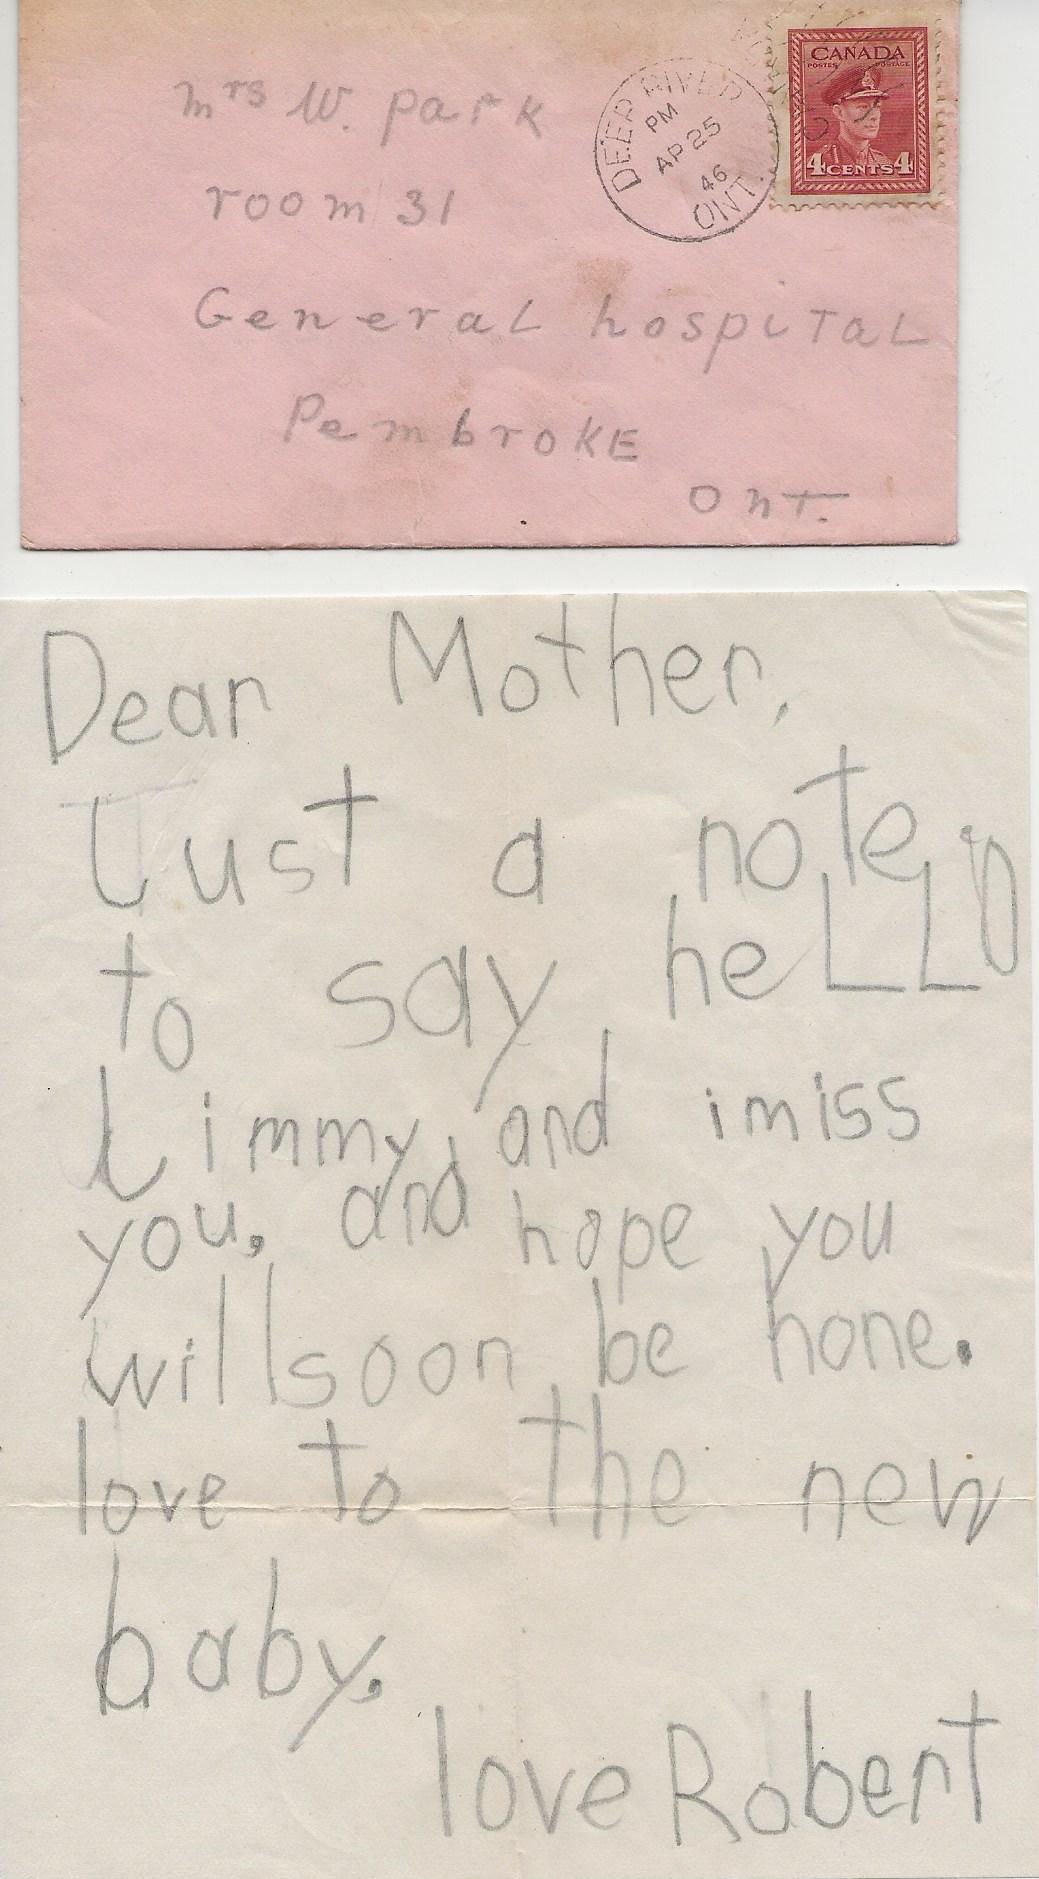 Mrs W. Park
room 31
General hospital
Pembroke
Ont.
DEEP RIVER
PM
AP 25
46
ONT.
CANADA
POSTES POSTAGE
4 CENTS 4
Dear Mother,
Just a note
to say heLLO
Jimmy, and i miss
you, and hope you
will soon be hone.
love to the new
baby.
love Robert